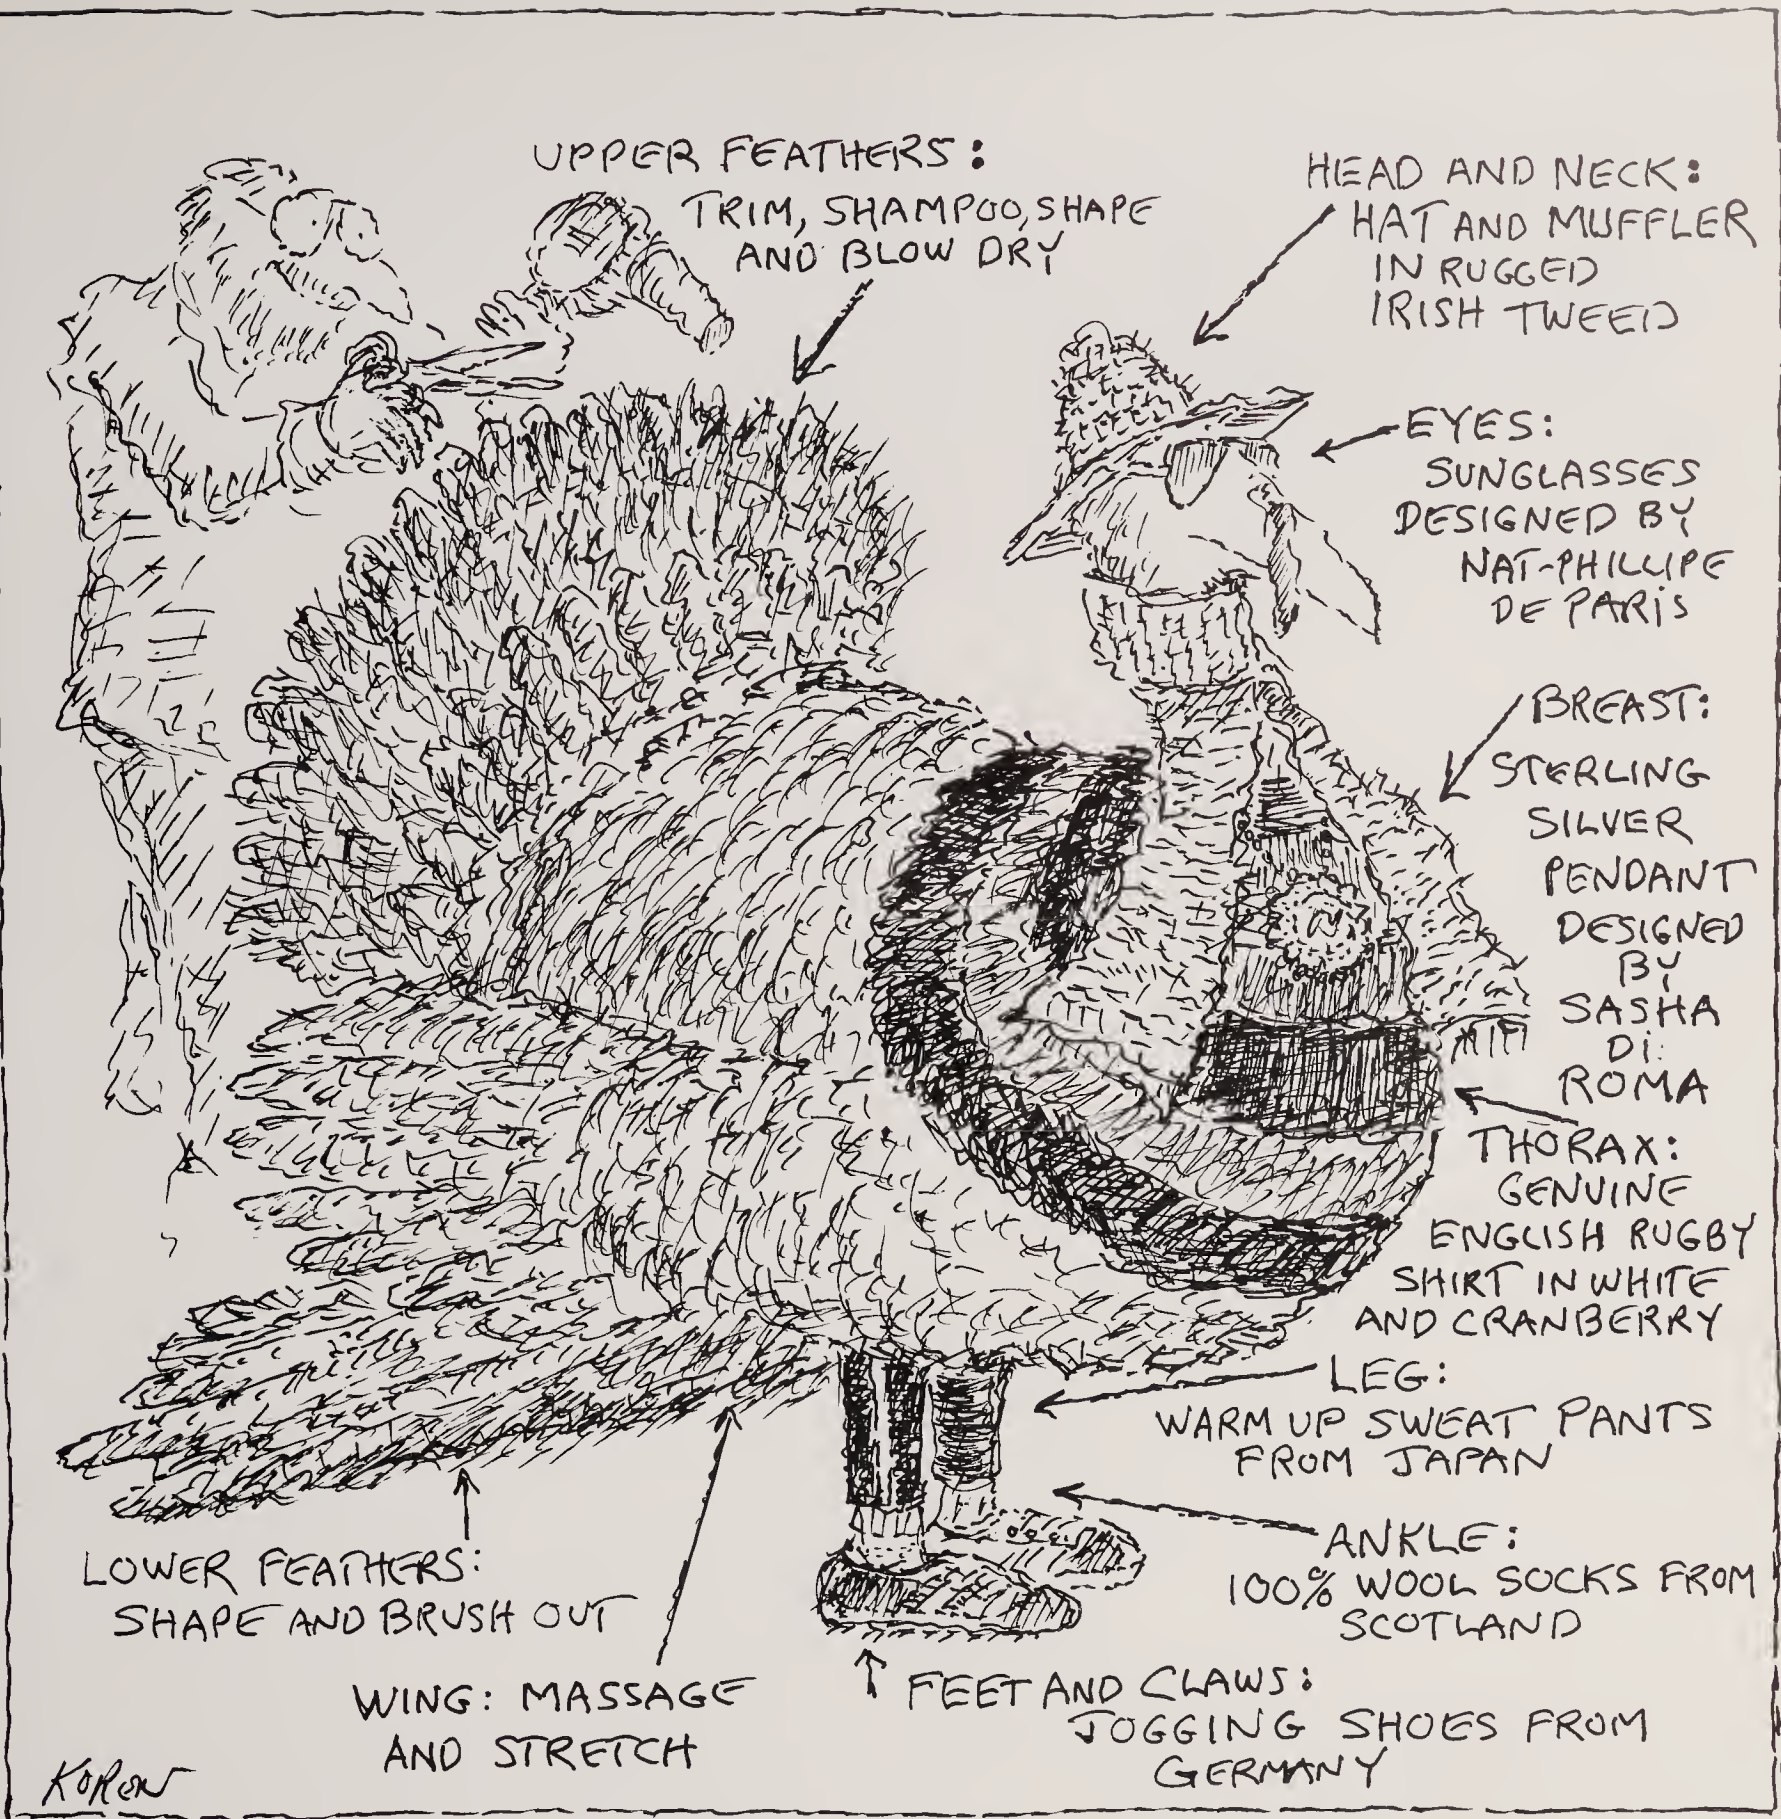 UPPER FEATHERS:
TRIM, SHAMPOO, SHAPE
AND BLOW DRY
HEAD AND NECK:
HAT AND MUFFLER
IN RUGGED
IRISH TWEED
EYES:
SUNGLASSES
DESIGNED BY
NAT-PHILLIPE
DE PARIS
BREAST:
STERLING
SILVER
PENDANT
DESIGNED
BY
SASHA
Di
ROMA
THORAX:
GENUINE
ENGLISH RUGBY
SHIRT IN WHITE
AND CRANBERRY
LEG:
WARM UP SWEAT PANTS
FROM JAPAN
ANKLE:
100% WOOL SOCKS FROM
SCOTLAND
FEET AND CLAWS:
JOGGING SHOES FROM
GERMANY
WING: MASSAGE
AND STRETCH
LOWER FEATHERS:
SHAPE AND BRUSH OUT
KOREN